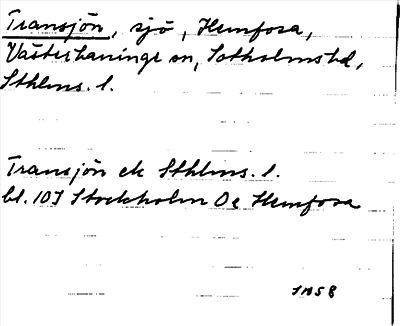 Transjön, sjö, Hemfosa,
Västerhaninge sn, Sotholms hd,
Sthlms. l.
Transjön ek Sthlms. l.
bl. 10I Stockholm Oe Hemfosa
1958